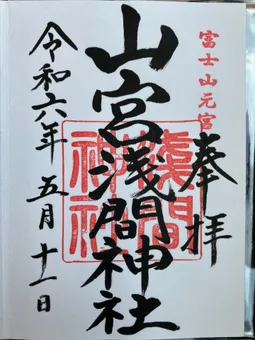 富士山元宮
奉拝
山宮浅間神社
淺間神社
令和六年五月十一日